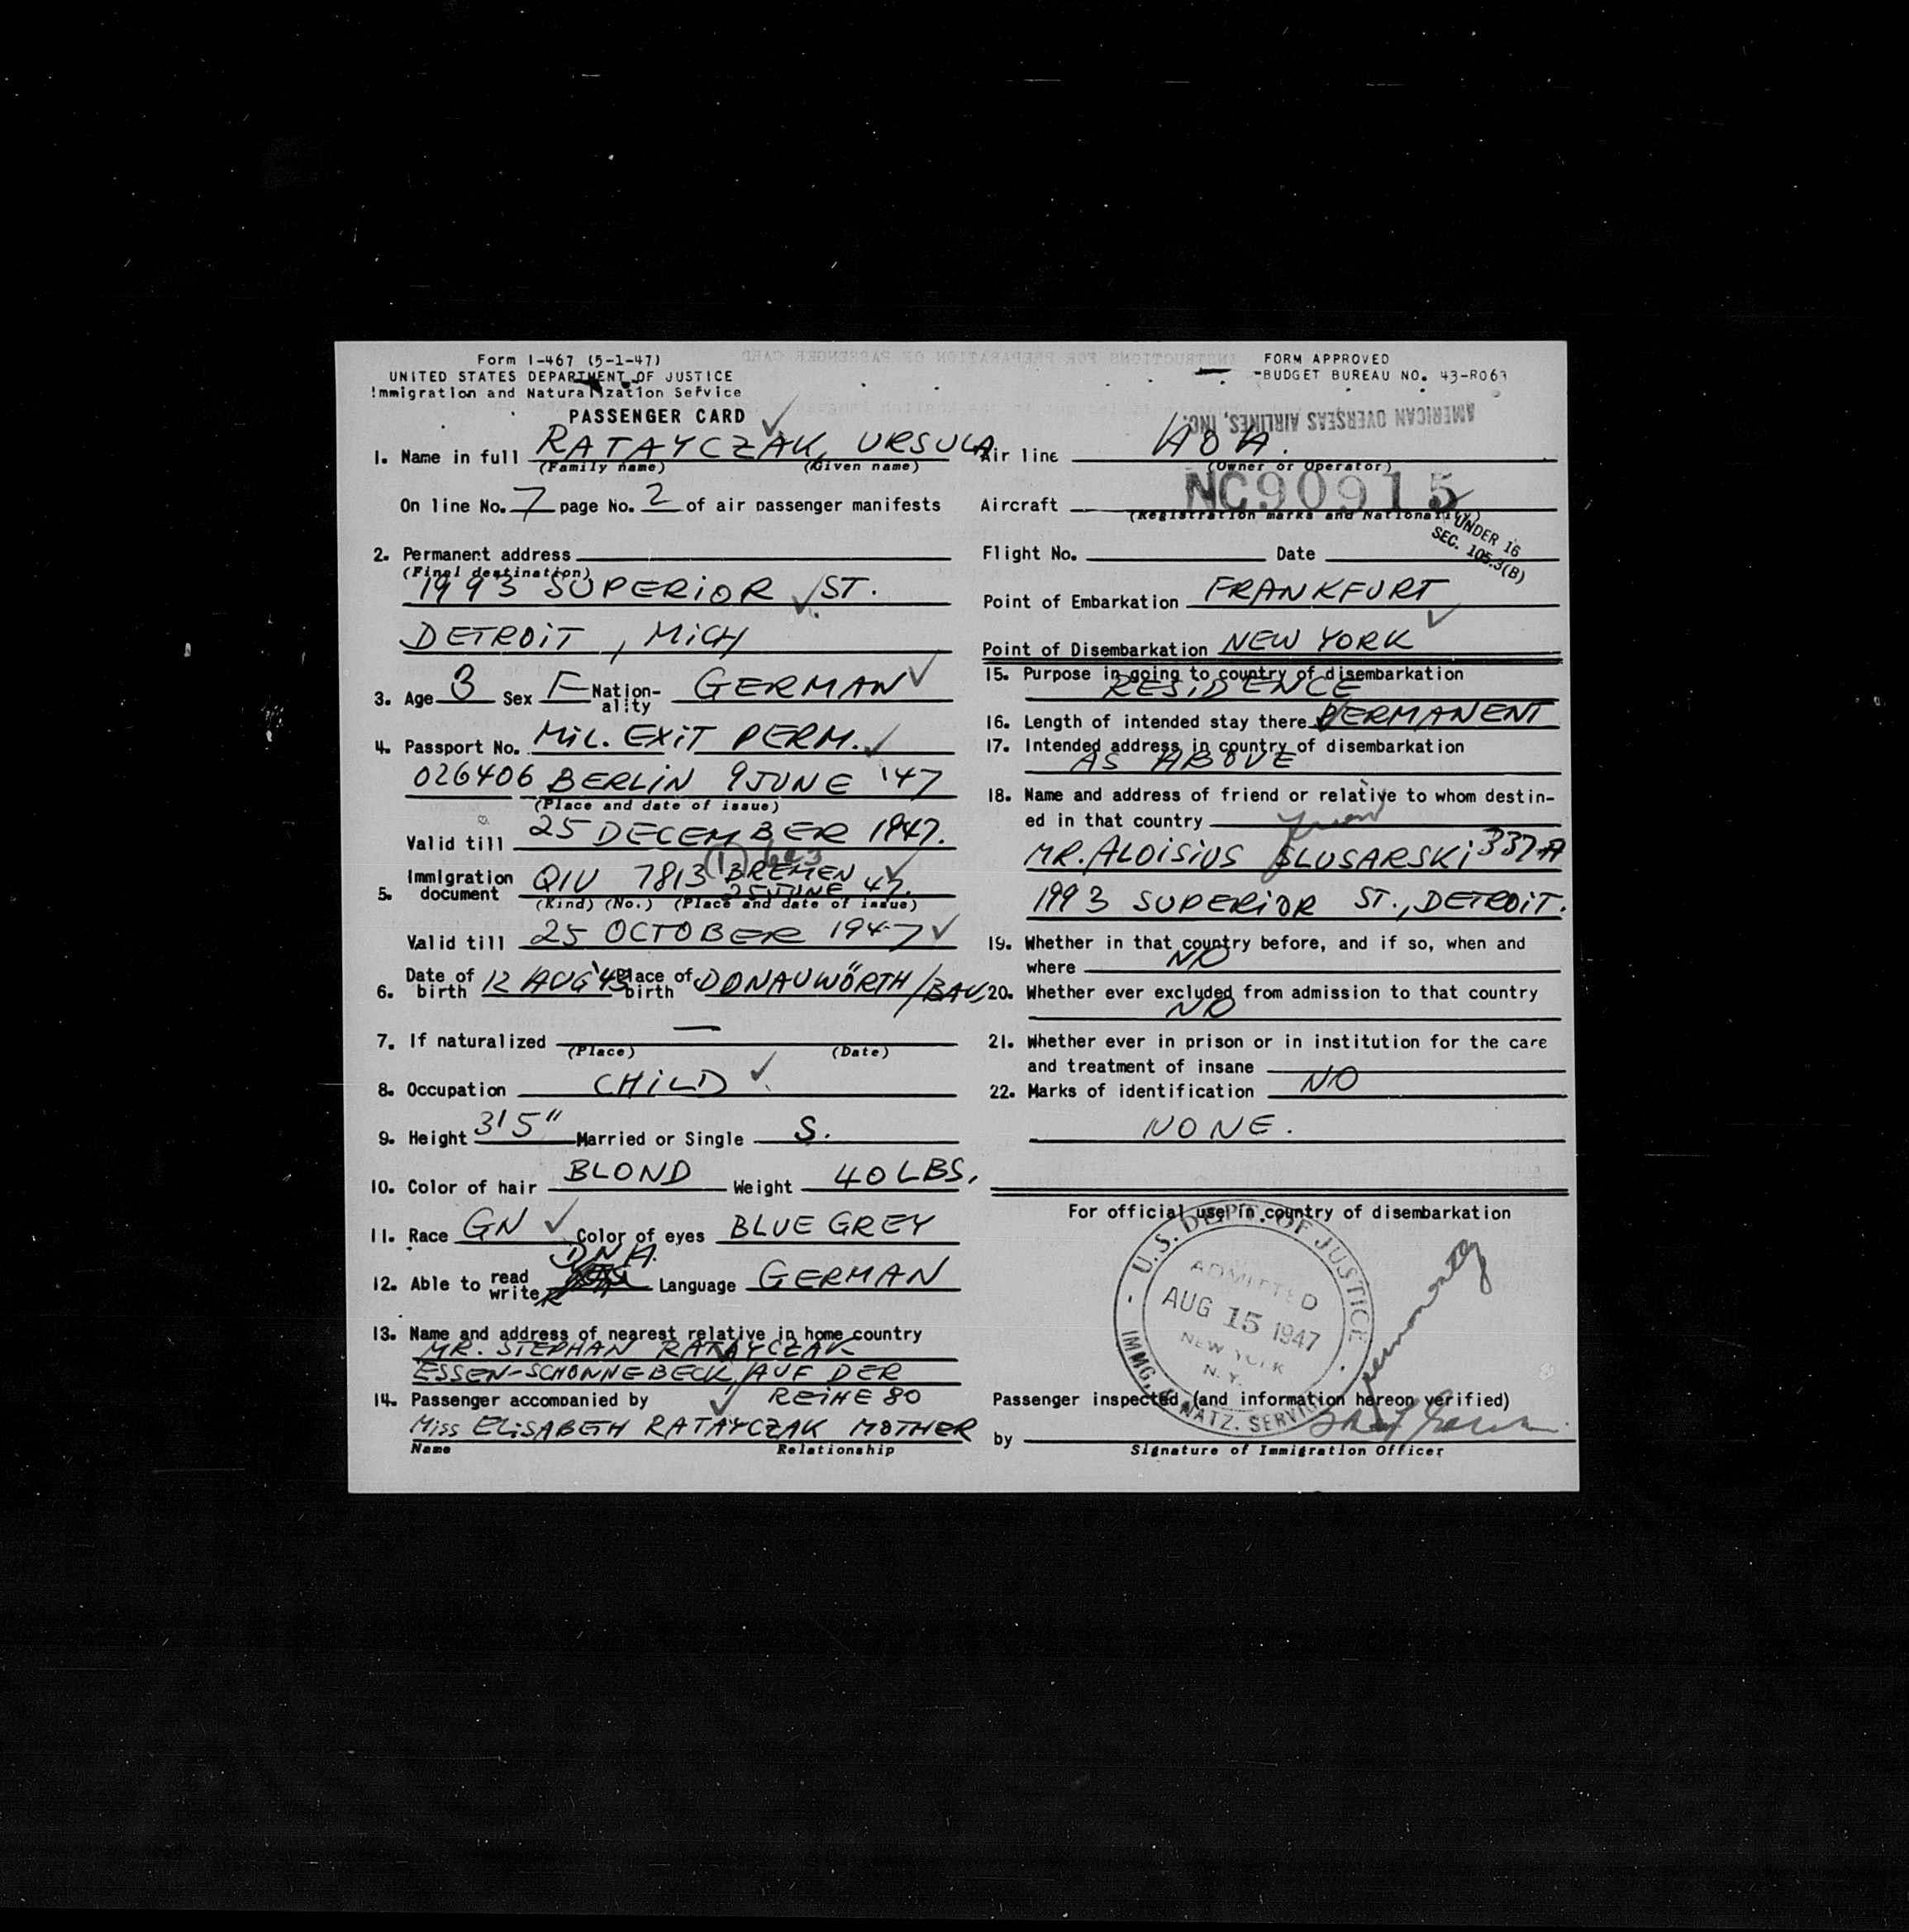 Form I-467 (5-1-47)
UNITED STATES DEPARTMENT OF JUSTICE
Immigration and Naturalization Service
PASSENGER CARD
1. Name in full RATAYCZAK, URSULA
(Family name) (Given name)
On line No. 7 page No. 2 of air passenger manifests
2. Permanent address
(Final destination)
1993 SUPERIOR ST.
DETROIT, MICH
3. Age 3 Sex F Nation-ality GERMAN
4. Passport No. MIL. EXIT PERM.
026406 BERLIN 9 JUNE '47
(Place and date of issue)
Valid till 25 DECEMBER 1947.
5. Immigration document QIV 7813 BREMEN 25 JUNE 47.
(Kind) (No.) (Place and date of issue)
Valid till 25 OCTOBER 1947
6. Date of birth 12 AUG '43 Place of birth DONAUWÖRTH/BAV.
7. If naturalized —
(Place) (Date)
8. Occupation CHILD
9. Height 3'5" Married or Single S.
10. Color of hair BLOND Weight 40 LBS.
11. Race GN Color of eyes BLUE GREY
12. Able to read write DNA. Language GERMAN
13. Name and address of nearest relative in home country
MR. STEPHAN RATAYCZAK
ESSEN-SCHONNEBECK/AUF DER
REIHE 80
14. Passenger accompanied by
MISS ELISABETH RATAYCZAK MOTHER
Name Relationship
FORM APPROVED
BUDGET BUREAU NO. 43-R063
AMERICAN OVERSEAS AIRLINES, INC.
Air line AOA.
(Owner or Operator)
Aircraft NC90915
(Registration marks and Nationality)
UNDER 16
SEC. 105.3(B)
Flight No. Date
Point of Embarkation FRANKFURT
Point of Disembarkation NEW YORK
15. Purpose in going to country of disembarkation
RESIDENCE
16. Length of intended stay there PERMANENT
17. Intended address in country of disembarkation
AS ABOVE
18. Name and address of friend or relative to whom destin-
ed in that country
friend
MR. ALOISIUS SLUSARSKI 337A
1993 SUPERIOR ST., DETROIT.
19. Whether in that country before, and if so, when and
where NO
20. Whether ever excluded from admission to that country
NO
21. Whether ever in prison or in institution for the care
and treatment of insane NO
22. Marks of identification
NONE.
For official use in country of disembarkation
U.S. DEPT. OF JUSTICE
ADMITTED
AUG 15 1947
NEW YORK
N.Y.
IMMG. & NATZ. SERVICE
permanently
Passenger inspected (and information hereon verified)
by
Signature of Immigration Officer